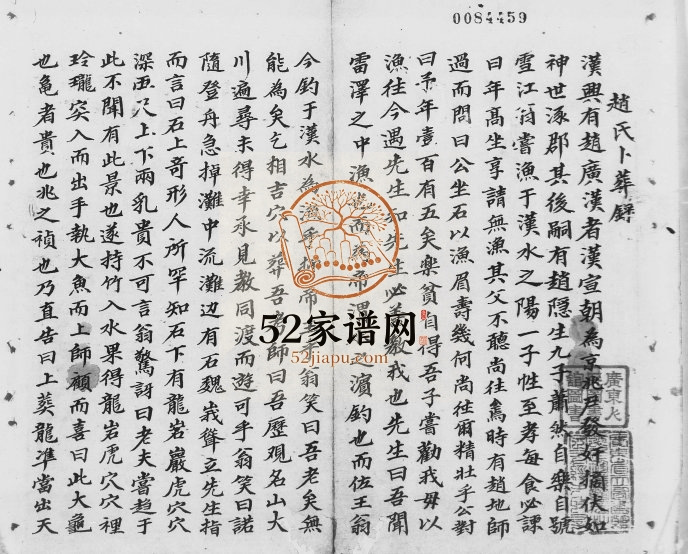 0084459
趙氏卜葬錄
漢興有趙廣漢者漢宣朝為京兆尹發奸摘伏如
神世涿郡其後嗣有趙隱生九子蕭然自樂自號
雪江翁嘗漁于漢水之陽一子性至孝每食必課
曰年高生享請無漁其父不聽尚往焉時有趙地師
過而問曰公坐石以漁眉壽幾何尚往爾精壯乎公對
曰予年壹百有五矣樂貧自得吾子嘗勸我毋以
漁往今遇先生 先生必 教我也先生曰吾聞
雷澤之中漁 而為帝渭 之濱釣也而佐王翁
今釣于漢水為 乎 帝 乎翁笑曰吾老矣無
能為矣乞相吉穴以葬吾 師曰吾歷观名山大
川遍尋未得幸承見教同渡而遊可乎翁笑曰諾
隨登舟急掉灘中流灘边有石魏峩聳立先生指
而言曰石上奇形人所罕知石下有龍岩巖虎穴穴
深 尺上下兩乳貴不可言翁驚訝曰老夫嘗趋于
此不聞有此景也遂持竹入水果得龍岩虎穴穴裡
玲瓏突入而出手執大魚而上師顧而喜曰此大龜
也龜者貴也兆之禎也乃直告曰上葬龍準當出天
52家谱网
52jiapu.com
廣東